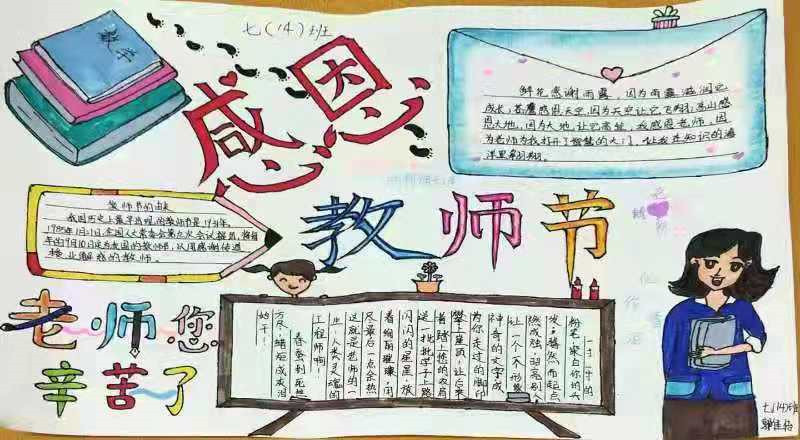 数学
七(14)班
感恩
鲜花感谢雨露,因为雨露滋润它
成长;苍鹰感恩天空,因为天空让它飞翔;高山感
恩大地,因为大地让它高耸。我感恩老师,因
为老师为我打开了智慧的大门,让我在知识的海
洋里翱翔。
教师节的由来
我国历史上最早出现的教师节是1931年。
1985年1月21日,全国人大常委会第九次会议
年的9月10日定为我国的教师节,以用感谢传道
授业解惑的教师。
教师节
老师您
辛苦了
一寸一寸的
粉笔,来自你的火
发,蓦然而起点
燃成烛,照亮别人
让一个个不形的
神奇的文字成
为你走过的脚印
攀上星顶,让后来
者踏上您的双肩
送一批批学子上路
闪闪的星星,放
着绚丽璀璨,用
尽最后一点余热
这就是老师的一
生,人类灵魂的
工程师啊!
春蚕到死丝
方尽,蜡炬成灰泪
始干!
七(14)班